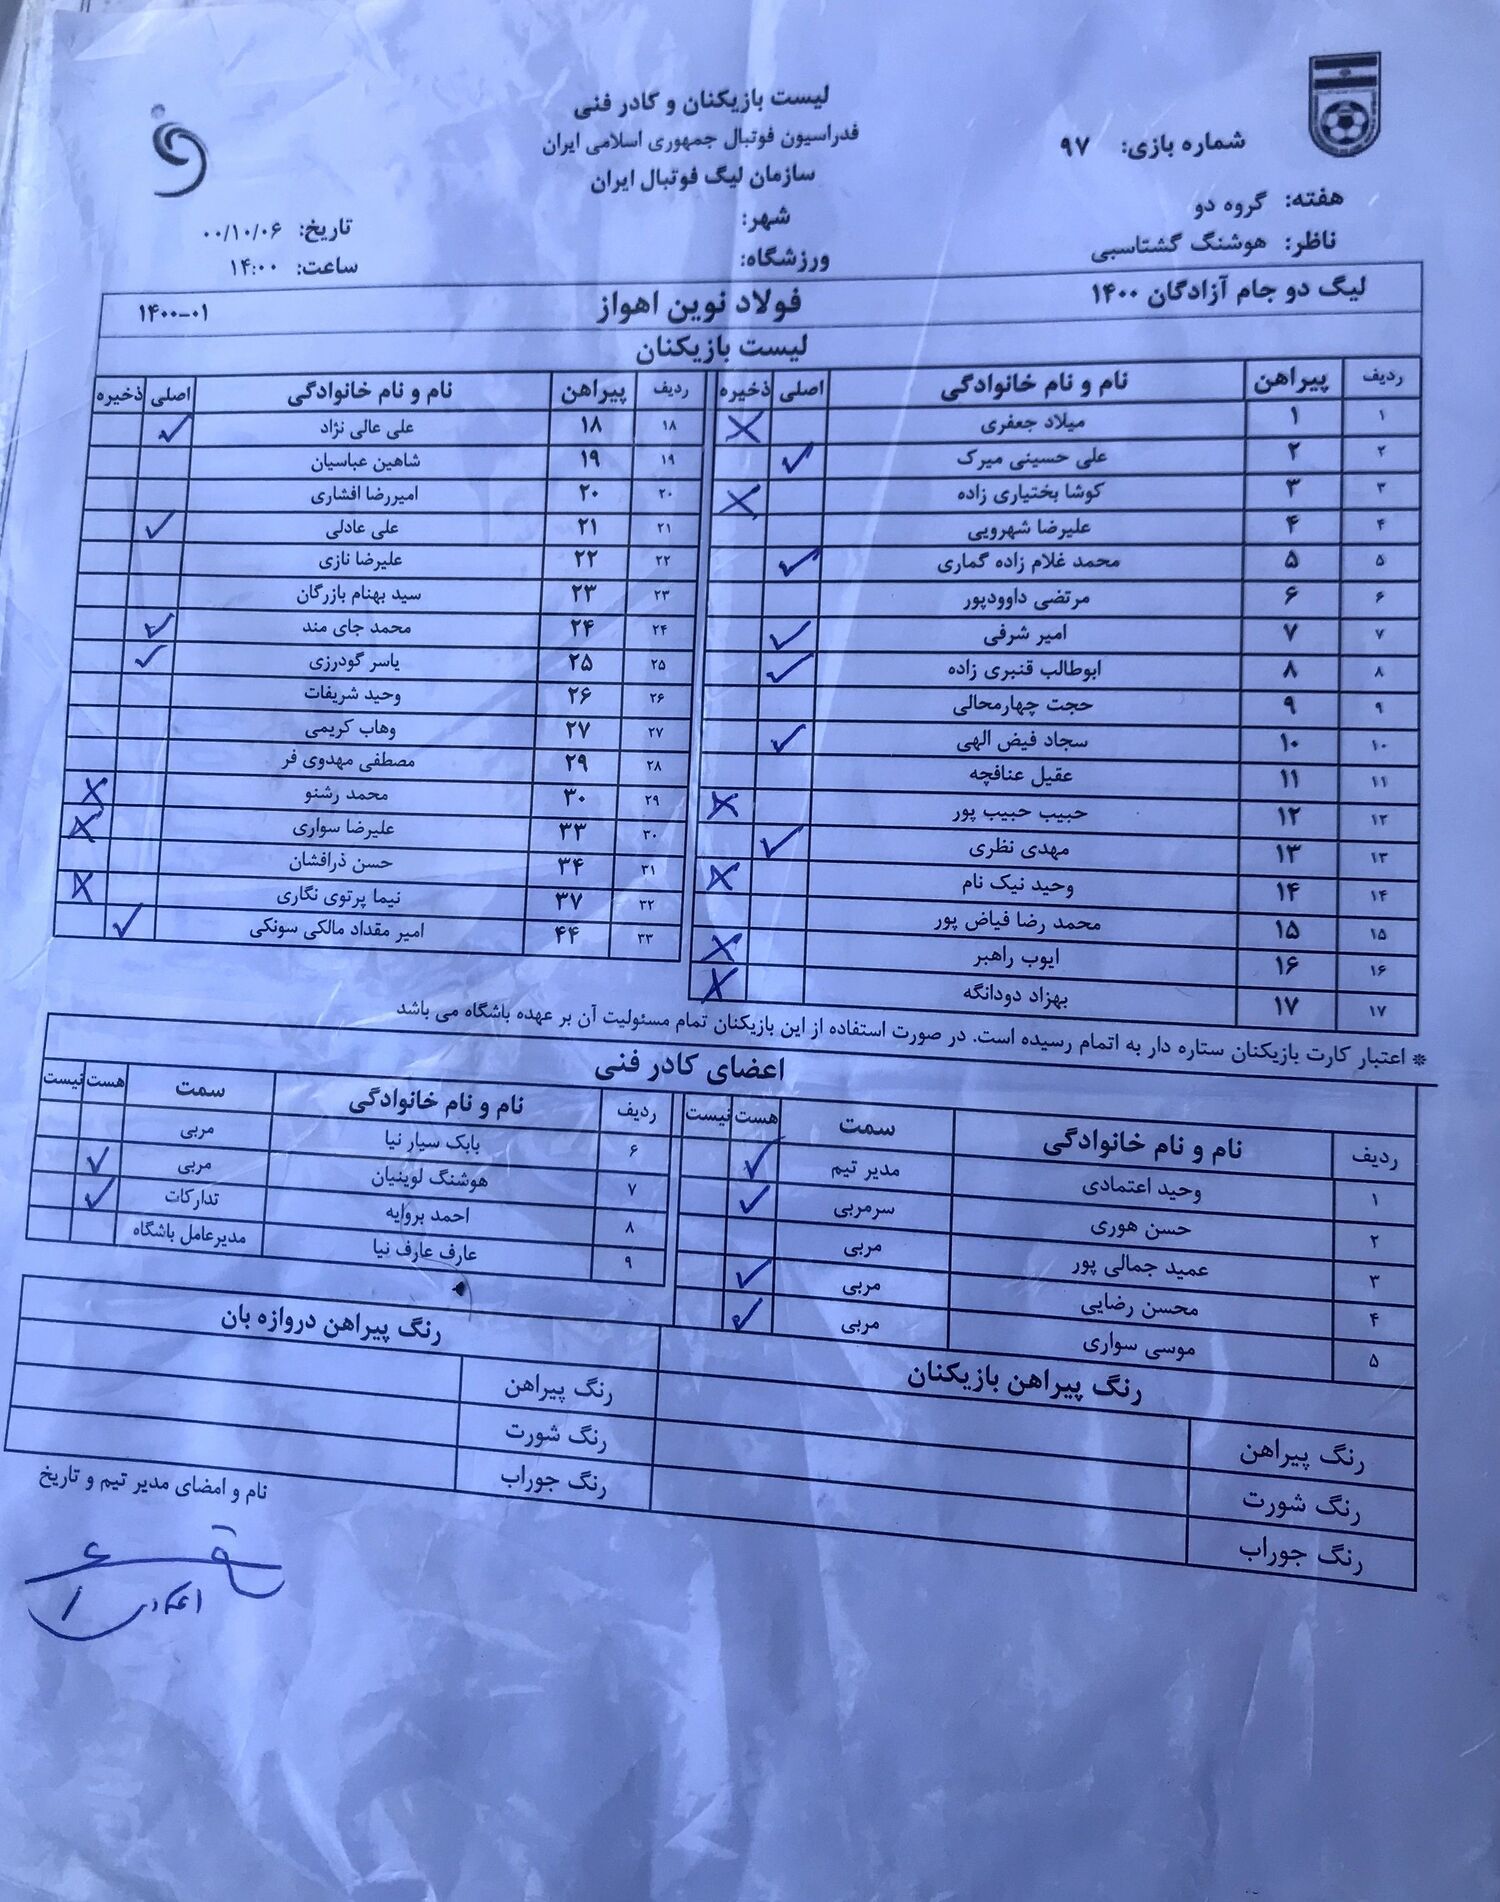 لیست بازیکنان و کادر فنی
فدراسیون فوتبال جمهوری اسلامی ایران
سازمان لیگ فوتبال ایران
شماره بازی: ۹۷
هفته: گروه دو
ناظر: هوشنگ گشتاسبی
شهر:
ورزشگاه:
تاریخ: ۰۰/۱۰/۰۶
ساعت: ۱۴:۰۰
لیگ دو جام آزادگان ۱۴۰۰ فولاد نوین اهواز ۱۴۰۰-۰۱
لیست بازیکنان
ردیف پیراهن نام و نام خانوادگی اصلی ذخیره
۱ ۱ میلاد جعفری
۲ ۲ علی حسینی میرک
۳ ۳ کوشا بختیاری زاده
۴ ۴ علیرضا شهرویی
۵ ۵ محمد غلام زاده گماری
۶ ۶ مرتضی داوودپور
۷ ۷ امیر شرفی
۸ ۸ ابوطالب قنبری زاده
۹ ۹ حجت چهارمحالی
۱۰ ۱۰ سجاد فیض الهی
۱۱ ۱۱ عقیل عنافچه
۱۲ ۱۲ حبیب حبیب پور
۱۳ ۱۳ مهدی نظری
۱۴ ۱۴ وحید نیک نام
۱۵ ۱۵ محمد رضا فیاض پور
۱۶ ۱۶ ایوب راهبر
۱۷ ۱۷ بهزاد دودانگه
ردیف پیراهن نام و نام خانوادگی اصلی ذخیره
۱۸ ۱۸ علی عالی نژاد
۱۹ ۱۹ شاهین عباسیان
۲۰ ۲۰ امیررضا افشاری
۲۱ ۲۱ علی عادلی
۲۲ ۲۲ علیرضا نازی
۲۳ ۲۳ سید بهنام بازرگان
۲۴ ۲۴ محمد جای مند
۲۵ ۲۵ یاسر گودرزی
۲۶ ۲۶ وحید شریفات
۲۷ ۲۷ وهاب کریمی
۲۸ ۲۹ مصطفی مهدوی فر
۲۹ ۳۰ محمد رشنو
۳۰ ۳۳ علیرضا سواری
۳۱ ۳۴ حسن ذرافشان
۳۲ ۳۷ نیما پرتوی نگاری
۳۳ ۴۴ امیر مقداد مالکی سونکی
* اعتبار کارت بازیکنان ستاره دار به اتمام رسیده است. در صورت استفاده از این بازیکنان تمام مسئولیت آن بر عهده باشگاه می باشد
اعضای کادر فنی
ردیف نام و نام خانوادگی سمت هست نیست
۱ وحید اعتمادی مدیر تیم
۲ حسن هوری سرمربی
۳ عمید جمالی پور مربی
۴ محسن رضایی مربی
۵ موسی سواری مربی
ردیف نام و نام خانوادگی سمت هست نیست
۶ بابک سیار نیا مربی
۷ هوشنگ لوینیان مربی
۸ احمد بروایه تدارکات
۹ عارف عارف نیا مدیرعامل باشگاه
رنگ پیراهن بازیکنان
رنگ پیراهن
رنگ شورت
رنگ جوراب
رنگ پیراهن دروازه بان
رنگ پیراهن
رنگ شورت
رنگ جوراب
نام و امضای مدیر تیم و تاریخ